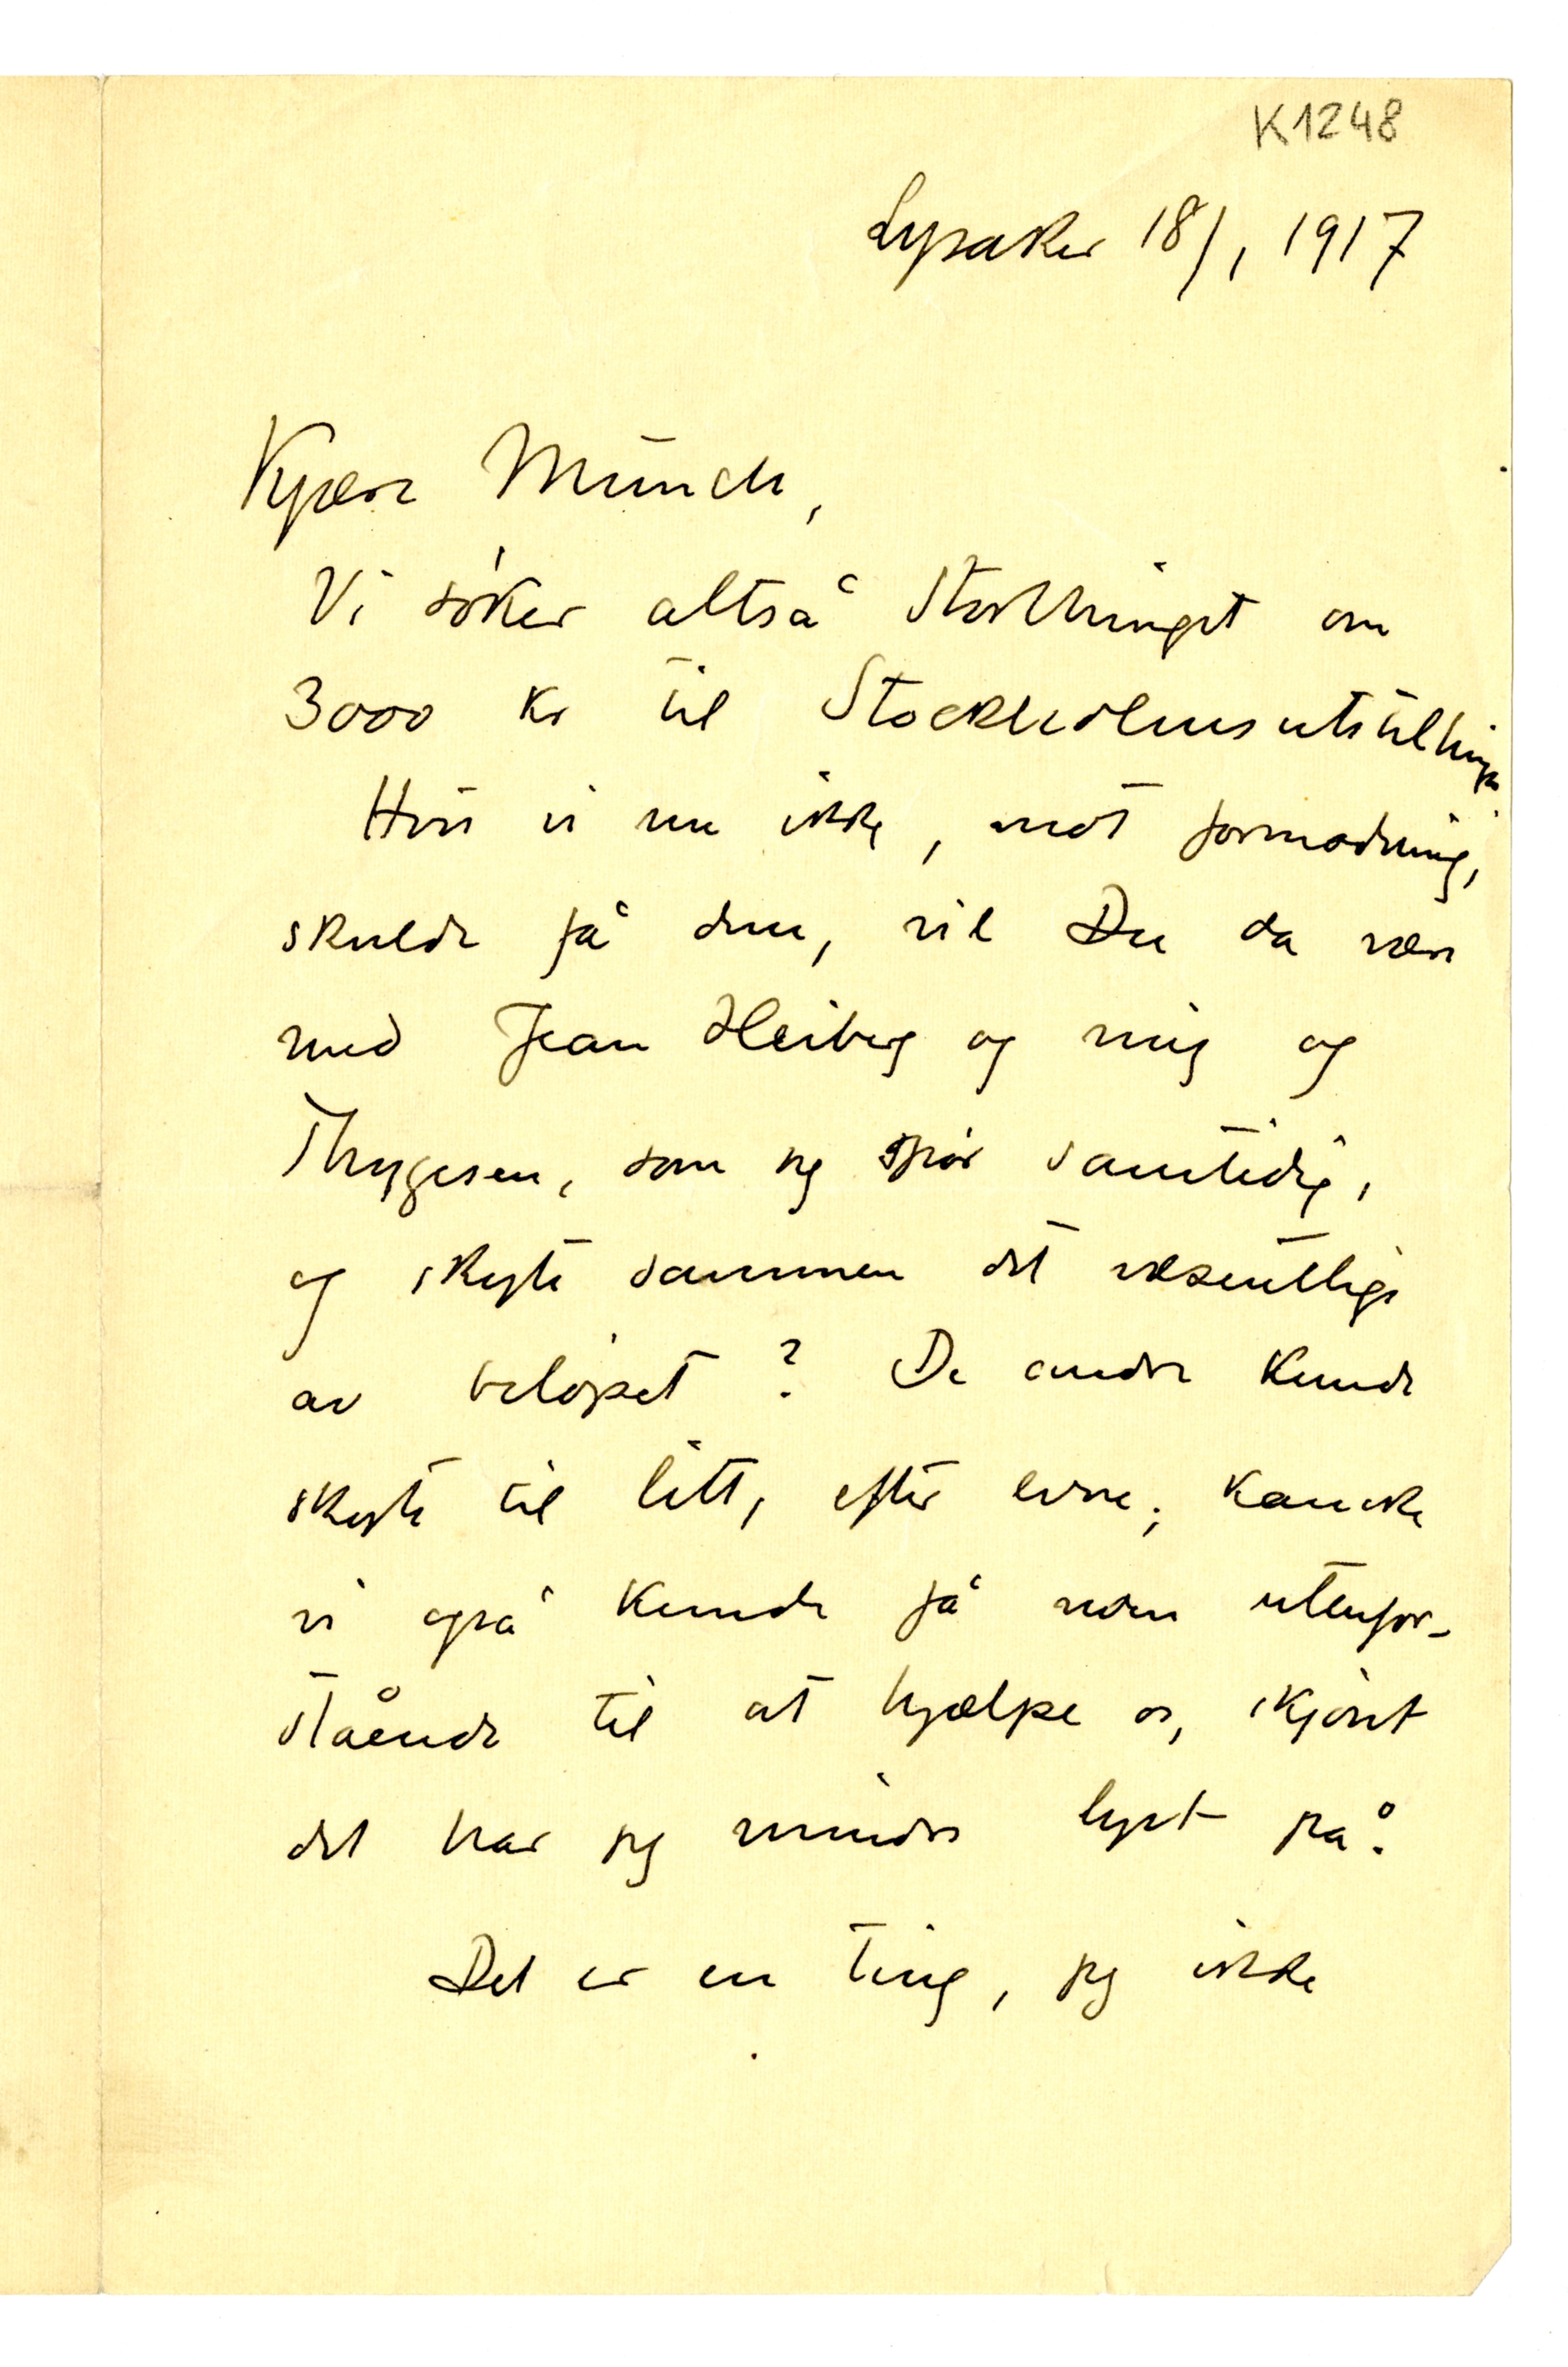 K1248
Lysaker 18/1 1917
Kjære Münch,
Vi söker altså Storthinget om
3000 kr til Stockholmsutstillingen.
Hvis vi nu ikke, mot formodning,
skulde få dem, vil Du da være
med Jean Heiberg og mig og
Thygesen, som jeg spör samtidig,
og skyte sammen det væsentlige
av belöpet? De andre kunde
skyte til litt, efter evne; kanske
vi også kunde få noen utenfor-
stående til at hjælpe os, skjönt
det har jeg mindre lyst på.
Det er en ting, jeg ikke